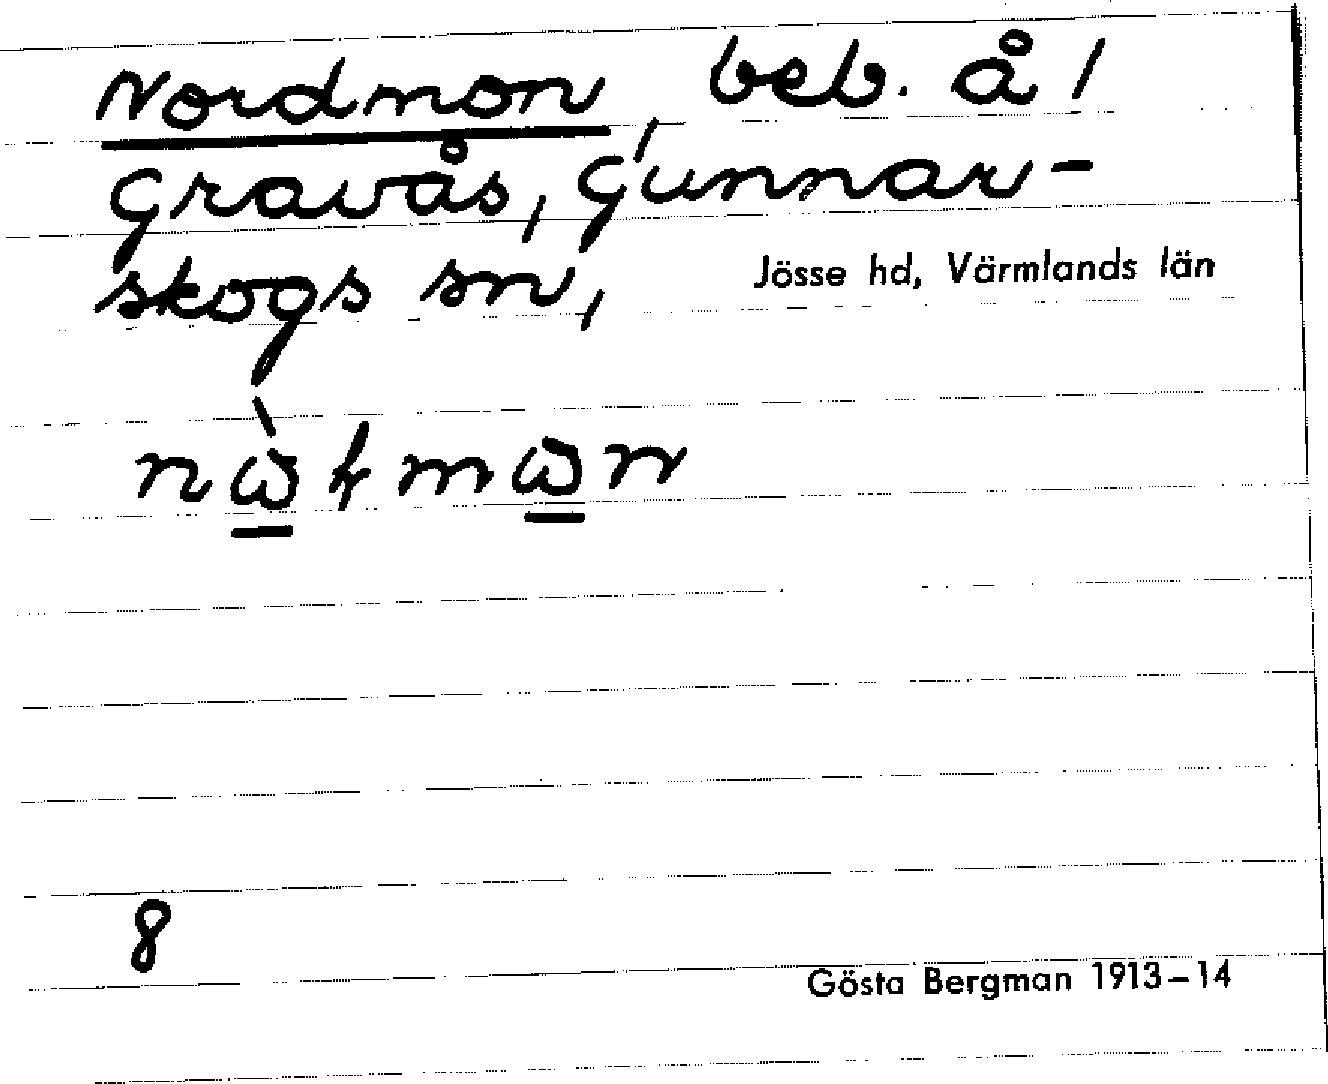 Nordmon, beb. å 1
Gravås, Gunnar-
skogs sn, Jösse hd, Värmlands län
8
Gösta Bergman 1913–14